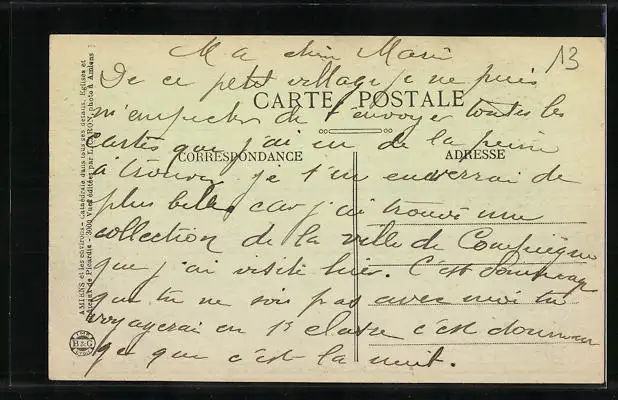 Ma chère Marie
13
De ce petit village je ne puis
m'empecher de t'envoyer toutes les
CARTE POSTALE
cartes que j'ai eu de la peine
CORRESPONDANCE
ADRESSE
à trouver je t'en enverrai de
plus belles car j'ai trouvé une
collection de la ville de Compiègne
que j'ai visité hier. C'est dommage
que tu ne sois pas avec moi tu
voyagerai en 1e classe c'est domma
ge que c'est la nuit.
AMIENS et les environs - Cathédrale dans tous ses détails, Eglises et
de Picardie - 3000 Vues éditées par L. CARON, photo à Amiens
B & G